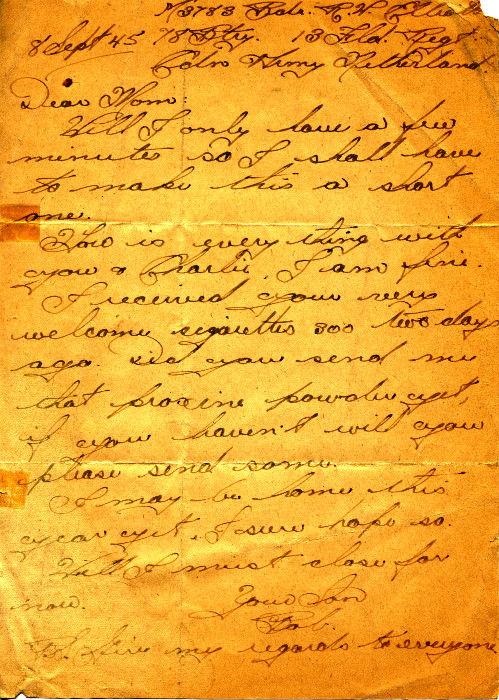 M3783 Bdr. R.H. Ellis
8 Sept 45 78 Bty. 13 Fld. Regt.
Cdn Army Netherland.
Dear Mom:
Well I only have a few
minutes so I shall have
to make this a short
one.
How is every thing with
you & Charlie, I am fine.
I received your very
welcome sigarettes 300 two days
ago. Did you send me
that powder yet,
if you haven't will you
please send some.
I may be home this
year yet, I sure hope so.
Well I must close for
now.
Your Son
Bob.
P.S. Give my regards to everyone